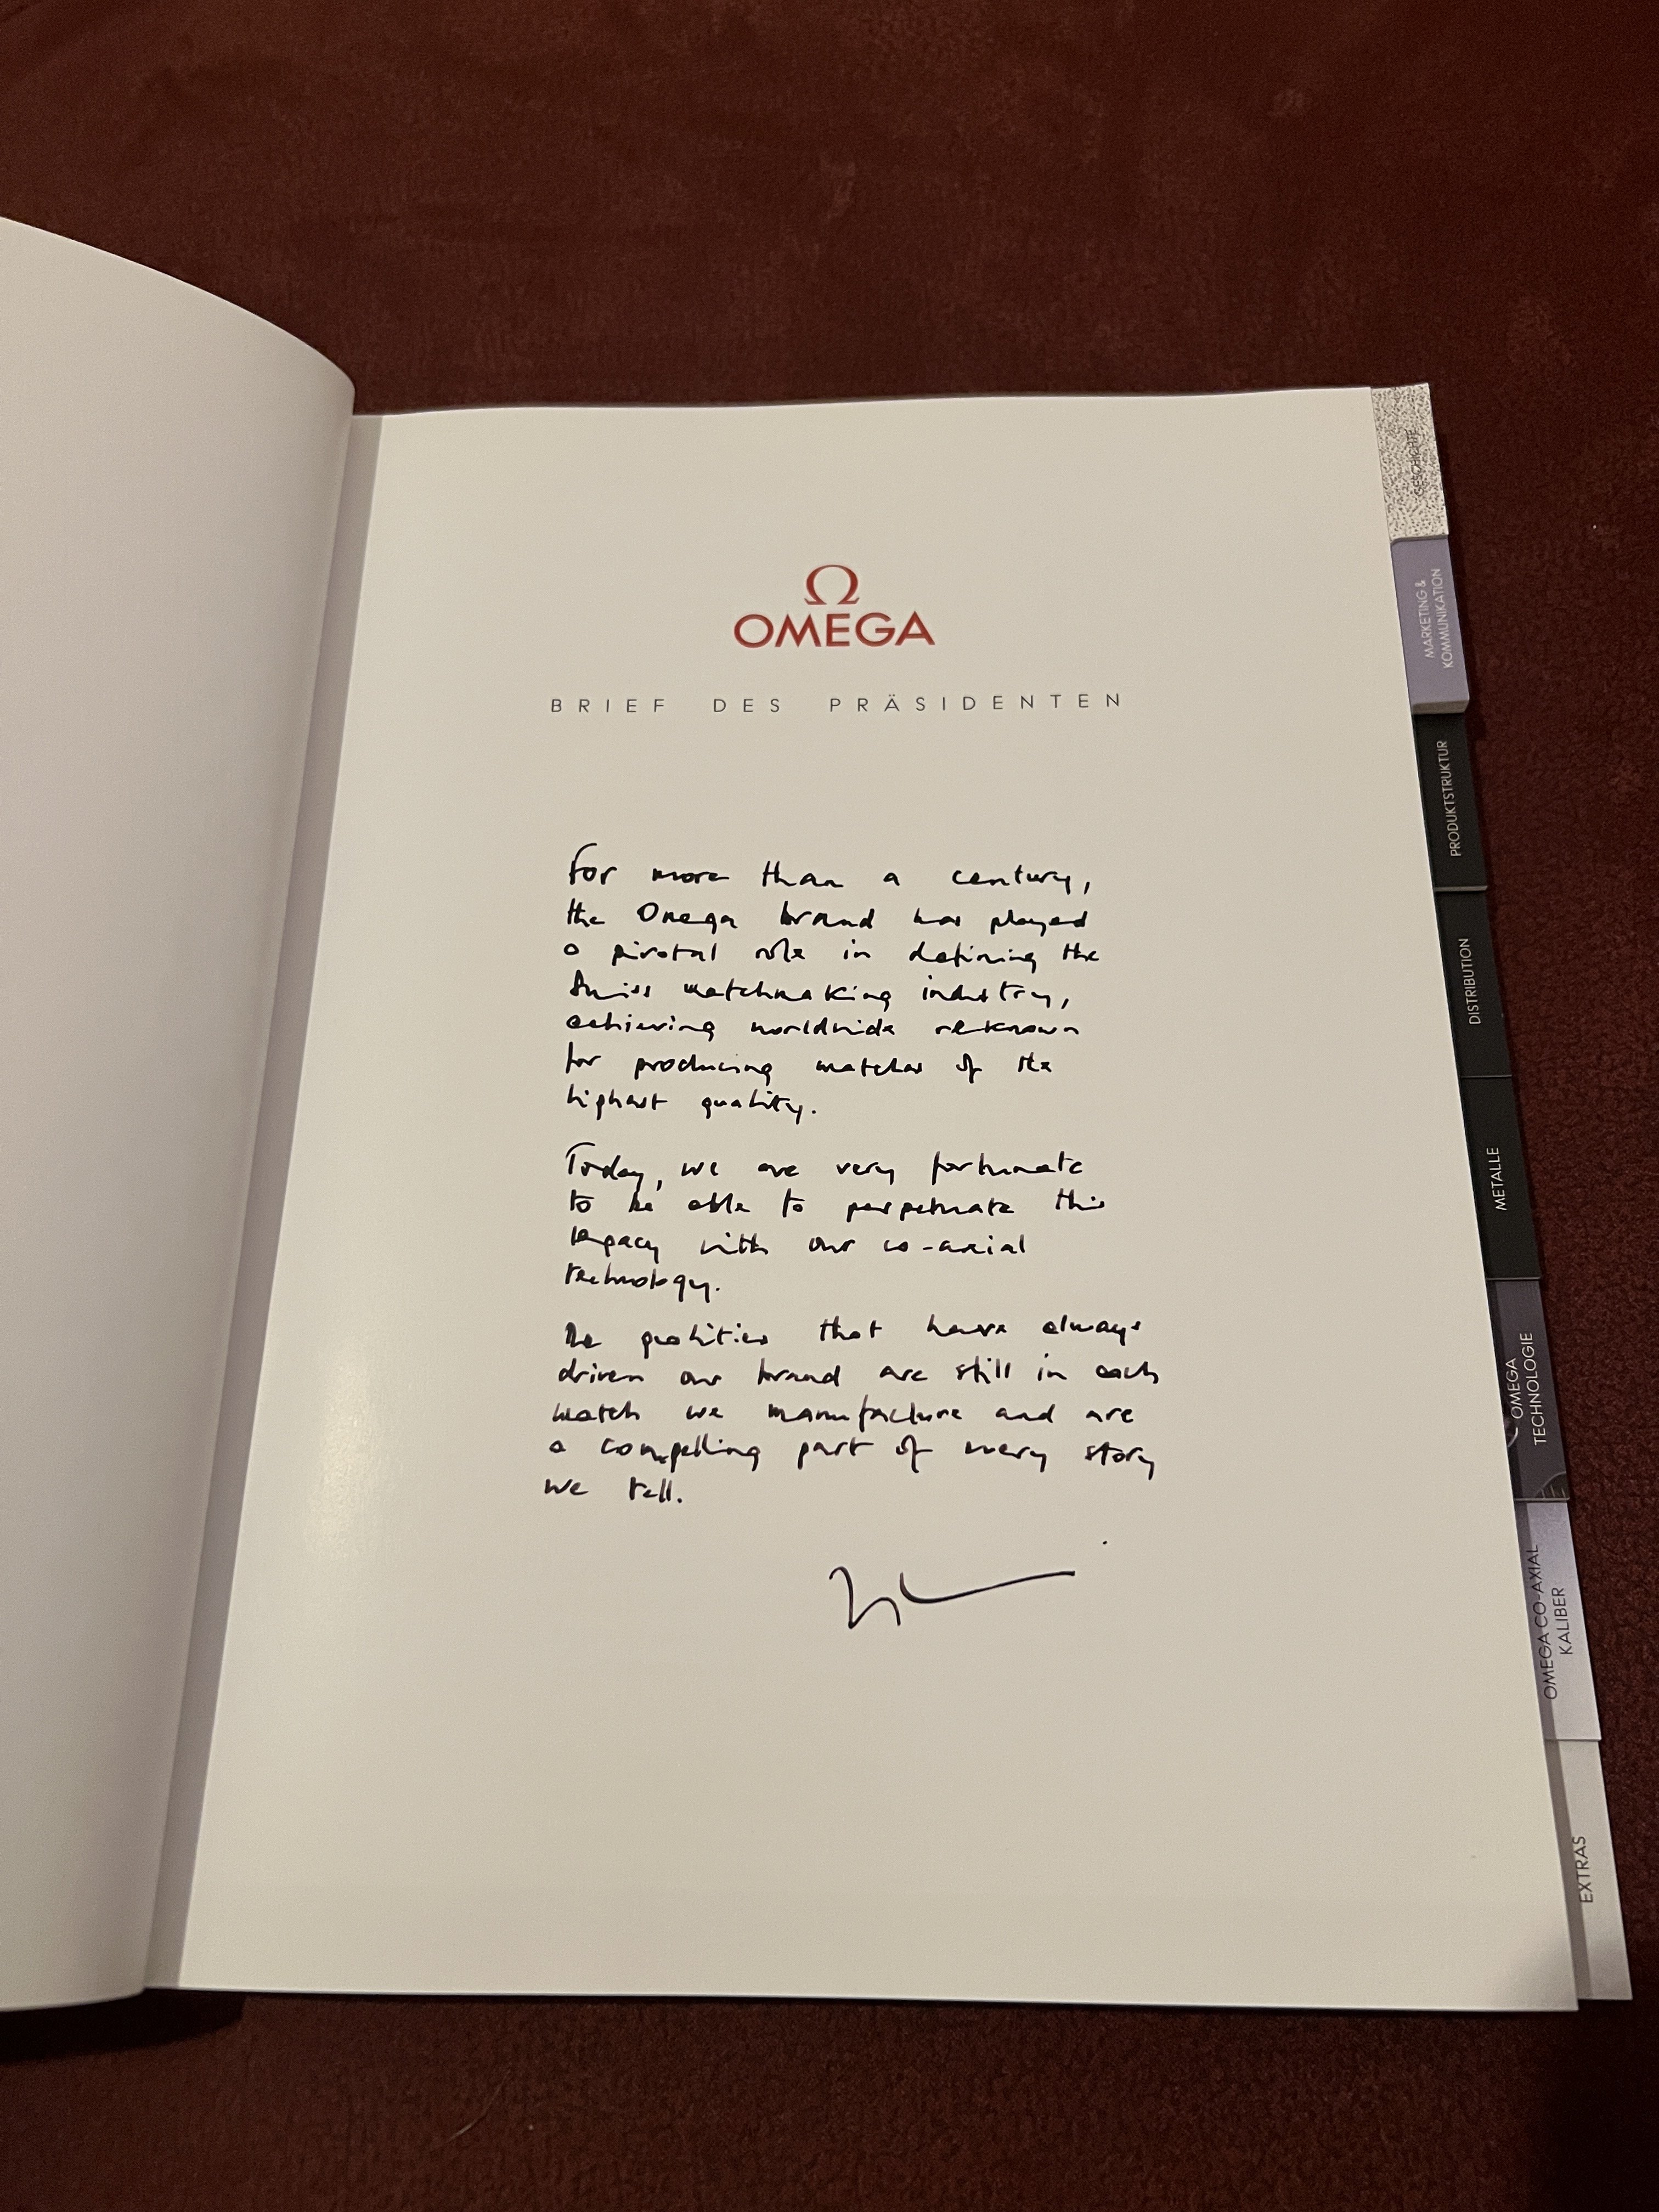 Ω
OMEGA
BRIEF DES PRÄSIDENTEN
For more than a century,
the Omega brand has played
a pivotal role in defining the
Swiss watchmaking industry,
achieving worldwide reknown
for producing watches of the
highest quality.
Today, we are very fortunate
to be able to perpetuate this
legacy with our co-axial
technology.
The qualities that have always
driven our brand are still in each
watch we manufacture and are
a compelling part of every story
we tell.
GESCHICHTE
MARKETING &
KOMMUNIKATION
PRODUKTSTRUKTUR
DISTRIBUTION
METALLE
OMEGA
TECHNOLOGIE
OMEGA CO-AXIAL
KALIBER
EXTRAS